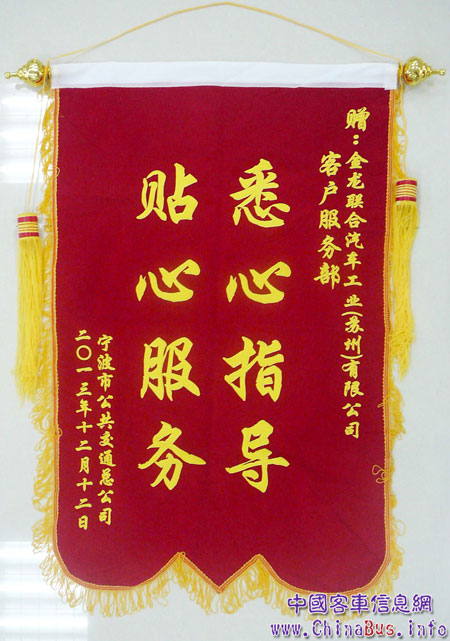 赠：金龙联合汽车工业(苏州)有限公司
客户服务部
悉心指导
贴心服务
宁波市公共交通总公司
二〇一三年十二月十二日
中國客車信息網
www.ChinaBus.info